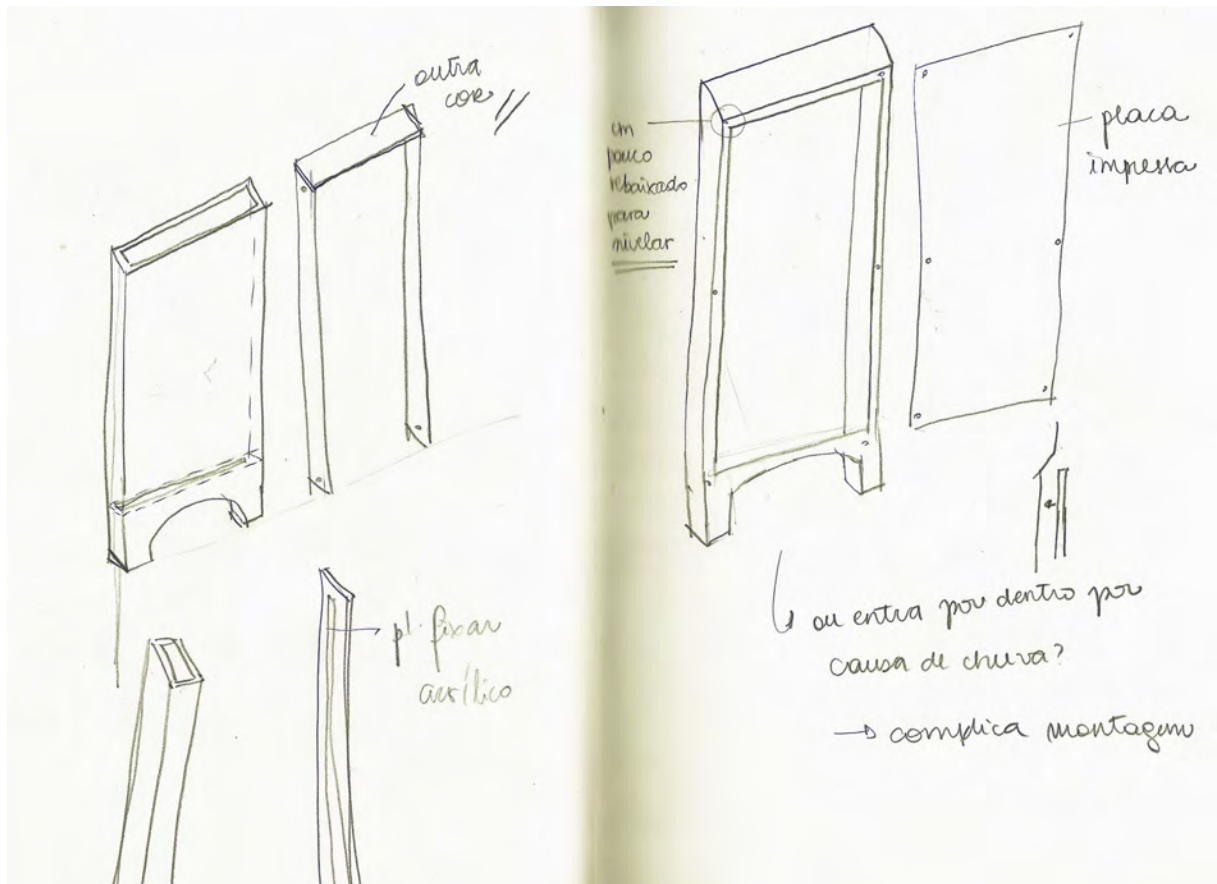 outra
cor
p/ fixar
acrílico
um
pouco
rebaixado
para
nivelar
placa
impressa
ou entra por dentro por
causa de chuva?
→ complica montagem